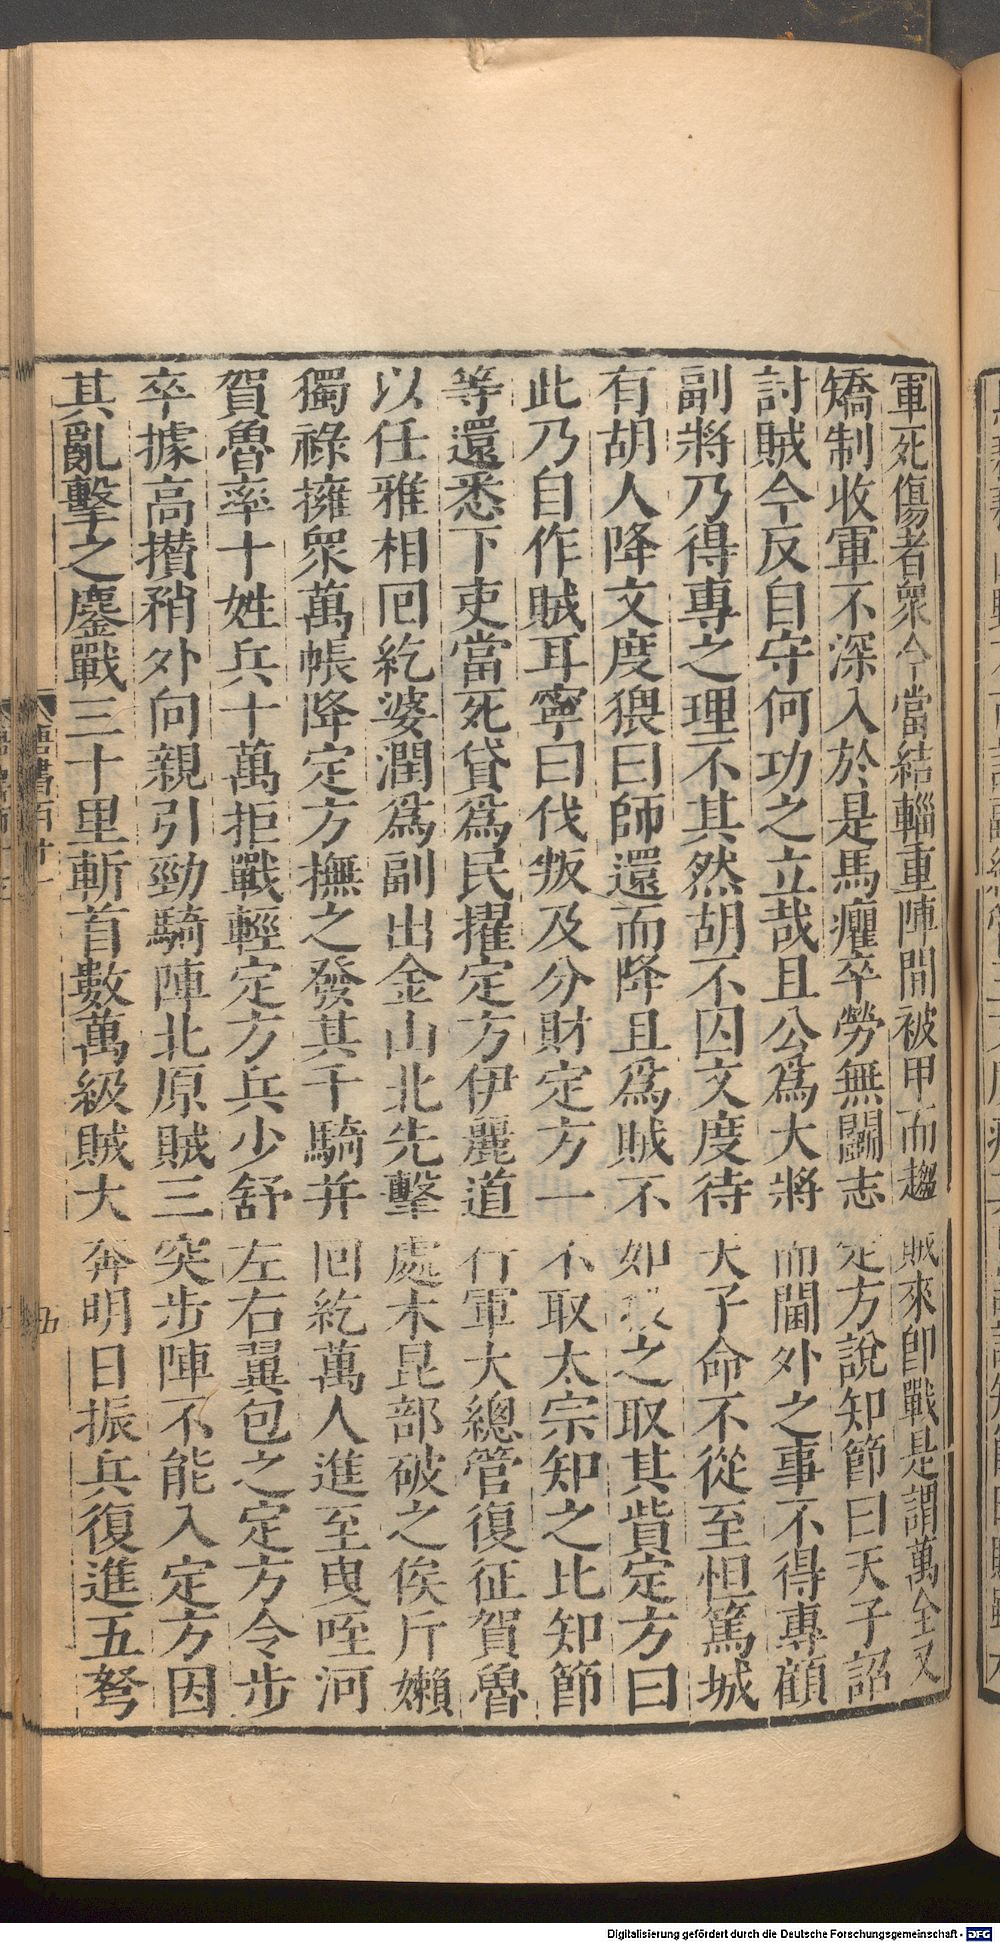 軍死傷者衆今當結輜重陣間被甲而趨賊來卽戰是謂萬全又
矯制收軍不深入於是馬癯卒勞無鬭志定方說知節曰天子詔
討賊今反自守何功之立哉且公爲大將而閫外之事不得專顧
副將乃得專之理不其然胡不囚文度待天子命不從至怛篤城
有胡人降文度猥曰師還而降且爲賊不如之取其貲定方曰
此乃自作賊耳寧曰伐叛及分財定方一不取太宗知之比知節
等還悉下吏當死貸爲民擢定方伊麗道行軍大總管復征賀魯
以任雅相囘紇婆潤爲副出金山北先擊處木昆部破之俟斤嬾
獨祿擁眾萬帳降定方撫之發其千騎并囘紇萬人進至曳咥河
賀魯率十姓兵十萬拒戰輕定方兵少舒左右翼包之定方令步
卒據高攢矟外向親引勁騎陣北原賊三突步陣不能入定方因
其亂擊之鏖戰三十里斬首數萬級賊大奔明日振兵復進五弩
唐書百十一
五
Digitalisierung gefördert durch die Deutsche Forschungsgemeinschaft - DFG